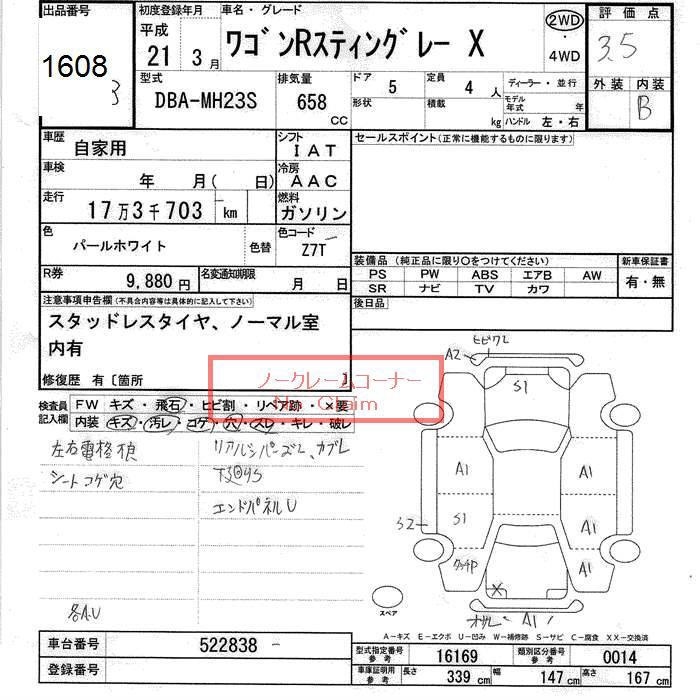 出品番号
1608
3
初度登録年月
平成
21 3月
車名・グレード
ワゴンRスティングレー X
2WD
・
4WD
評価点
3.5
外装 内装
B
型式
DBA-MH23S
排気量
658
CC
ドア
5
定員
4 人
形状
積載
kg
ディーラー・並行
モデル
年式 年
ハンドル 左・右
車歴
自家用
シフト
IAT
車検
年 月( 日)
冷房
AAC
走行
17万3千703 km
燃料
ガソリン
色
パールホワイト
色替
色コード
Z7T
R券
9,880 円
名変通知期限
月 日
セールスポイント(正常に機能するものに限ります)
装備品 (純正品に限り〇をつけてください)
PS PW ABS エアB AW
SR ナビ TV カワ
新車保証書
有・無
後日品
注意事項申告欄 (不具合内容等は具体的に記入して下さい)
スタッドレスタイヤ、ノーマル室
内有
修復歴 有〔箇所 〕
ノークレームコーナー
No Claim
検査員
記入欄
FW キズ・飛石・ヒビ割・リペア跡・×要
内装 キズ・汚レ・コゲ・穴・スレ・キレ・破レ
左右電格損
シートコゲ穴
各A.U
エンドパネルU
A2
S1
A1
A1
S1
A1
S2
A1
X
A1
スペア
A－キズ E－エクボ U－凹み W－補修跡 S－サビ C－腐食 XX－交換済
車台番号
522838
登録番号
型式指定番号
参考
16169
類別区分番号
参考
0014
車庫証明用
参考
長さ
339 cm
幅
147 cm
高さ
167 cm